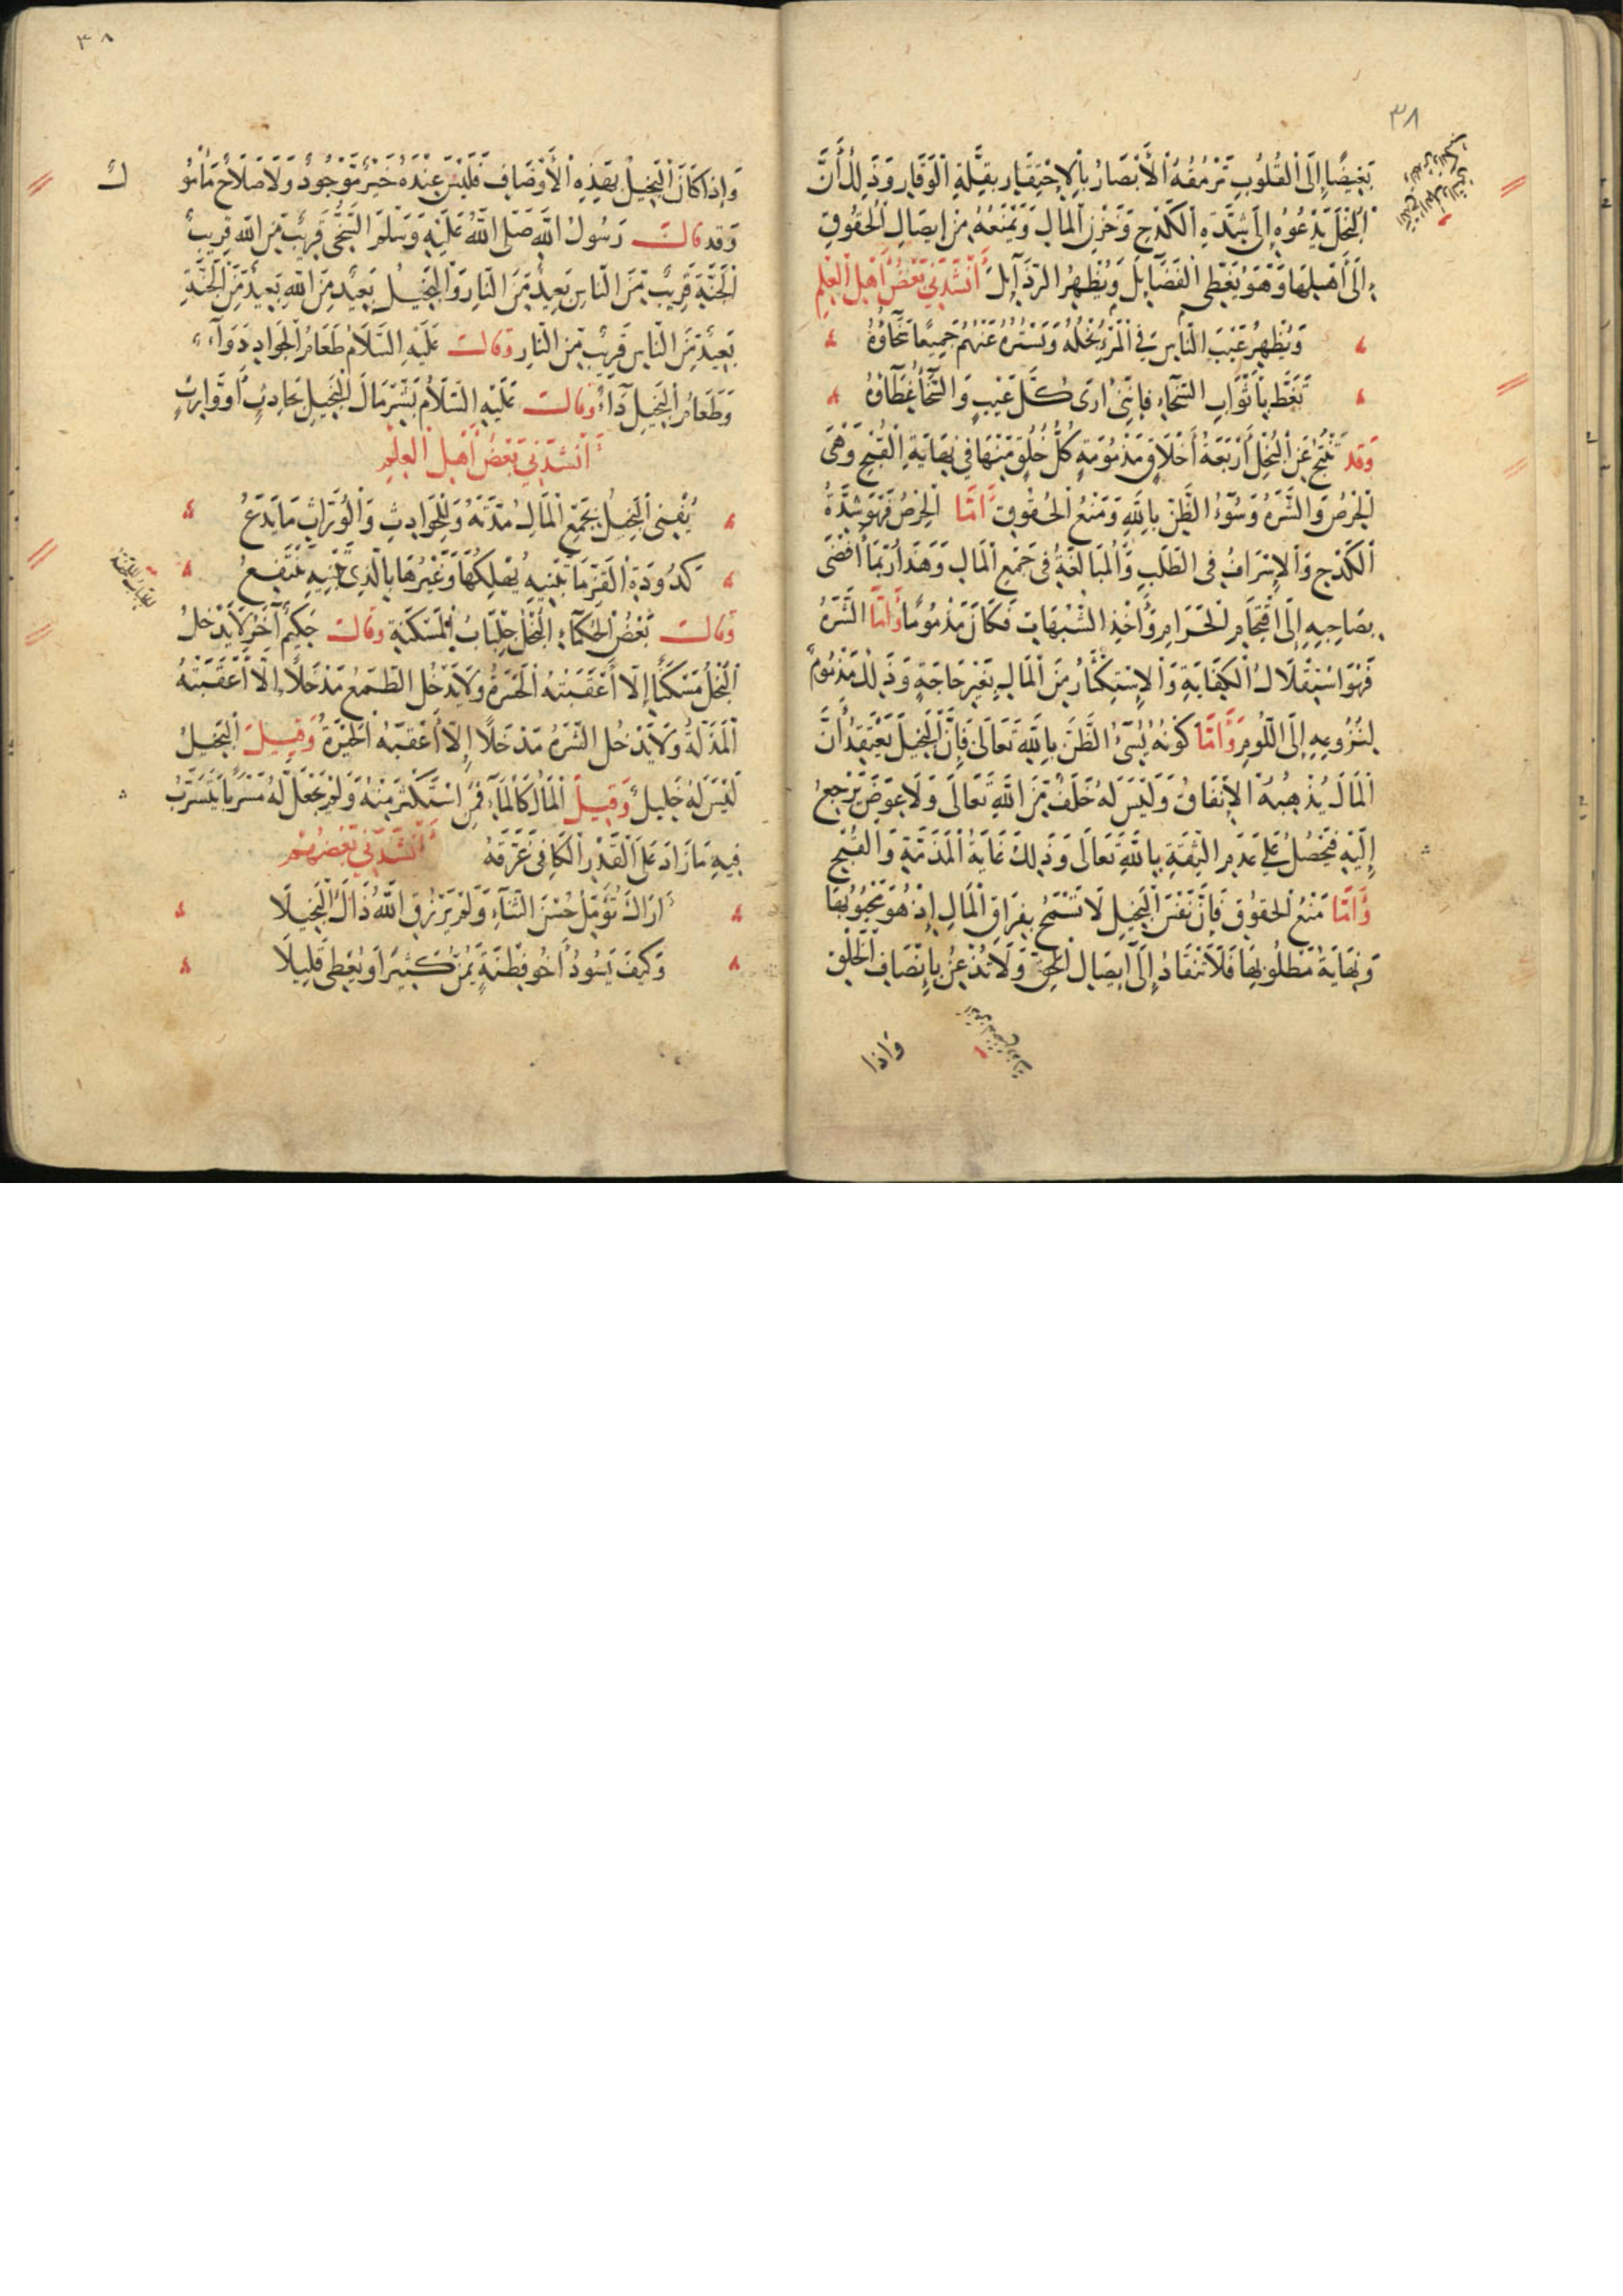 ٣٨
بَغِيضًا إِلَى الْقُلُوبِ تَرْمُقُهُ الْأَبْصَارُ بِالْاِحْتِقَارِ بِقِلَّةِ الْوَقَارِ وَذَلِكَ أَنَّ
الْبُخْلَ يَدْعُوهُ إِلَى شِدَّةِ الْكَدْحِ وَخَزْنِ الْمَالِ وَيَمْنَعُهُ مِنْ اِيصَالِ الْحُقُوقِ
إِلَى أَهْلِهَا وَهُوَ يُغَطِّي الْفَضَآئِلَ وَيُظْهِرُ الرَّذَآئِلَ أَنْشَدَنِي بَعْضُ أَهْلِ الْعِلْمِ
وَيُظْهِرُ عَيْبَ النَّاسِ فِي الْمَرْءِ بُخْلُهُ وَيَسْتُرُهُ عَنْهُمْ جَمِيعًا سَخَآؤُهُ
تَغَطَّ بِأَثْوَابِ السَّخَآءِ فَإِنَّنِي أَرَى كُلَّ عَيْبٍ وَالسَّخَآءُ غِطَآؤُهُ
وَقَدْ يَنْتِجُ عَنِ الْبُخْلِ أَرْبَعَةُ أَخْلَاقٍ مَذْمُومَةٍ كُلُّ خُلُقٍ مِنْهَا فِي نِهَايَةِ الْقُبْحِ وَهِيَ
الْحِرْصُ وَالشَّرَهُ وَسُوْءُ الظَّنِّ بِاللَّهِ وَمَنْعُ الْحُقُوقِ أَمَّا الْحِرْصُ فَهُوَ شِدَّةُ
الْكَدْحِ وَالْإِسْرَافُ فِي الطَّلَبِ وَالْمُبَالَغَةُ فِي جَمْعِ الْمَالِ وَهَذَا رُبَّمَا أَفْضَى
بِصَاحِبِهِ إِلَى اقْتِحَامِ الْحَرَامِ وَأَخْذِ الشُّبُهَاتِ فَكَانَ مَذْمُومًا وَأَمَّا الشَّرَهُ
فَهُوَ اسْتِقْلَالُ الْكِفَايَةِ وَالْاِسْتِكْثَارُ مِنَ الْمَالِ بِغَيْرِ حَاجَةٍ وَذَلِكَ مَذْمُومٌ
لِنُزُوعِهِ إِلَى اللَّوْمِ وَأَمَّا كَوْنُهُ يُسِيْءُ الظَّنَّ بِاللَّهِ تَعَالَى فَإِنَّ الْبَخِيلَ يَعْتَقِدُ أَنَّ
الْمَالَ يُذْهِبُهُ الْإِنْفَاقُ وَلَيْسَ لَهُ خَلَفٌ مِنَ اللَّهِ تَعَالَى وَلَا عِوَضٌ يَرْجِعُ
إِلَيْهِ فَيَحْصُلُ عَلَى عَدَمِ الثِّقَةِ بِاللَّهِ تَعَالَى وَذَلِكَ غَايَةُ الْمَذَمَّةِ وَالْقُبْحِ
وَأَمَّا مَنْعُ الْحُقُوقِ فَإِنَّ نَفْسَ الْبَخِيلِ لَا تَسْمَحُ بِفِرَاقِ الْمَالِ إِذْ هُوَ مَحْبُوبُهَا
وَنِهَايَةُ مَطْلُوبِهَا فَلَا تَنْقَادُ إِلَى اِيصَالِ الْحَقِّ وَلَا تُذْعِنُ بِإِنْصَافِ الْخَلْقِ
وَاِذَا
٣٨
وَإِذَا كَانَ الْبَخِيلُ بِهَذِهِ الْأَوْصَافِ فَلَيْسَ عِنْدَهُ خَيْرٌ مَوْجُودٌ وَلَا صَلَاحٌ مَأْمُو
لٌ
وَقَدْ قَالَ رَسُولُ اللَّهِ صَلَّى اللَّهُ عَلَيْهِ وَسَلَّمَ السَّخِيُّ قَرِيبٌ مِنَ اللَّهِ قَرِيبٌ
الْجَنَّةِ قَرِيبٌ مِنَ النَّاسِ بَعِيدٌ مِنَ النَّارِ وَالْبَخِيلُ بَعِيدٌ مِنَ اللَّهِ بَعِيدٌ مِنَ الْجَنَّةِ
بَعِيدٌ مِنَ النَّاسِ قَرِيبٌ مِنَ النَّارِ وَقَالَ عَلَيْهِ السَّلَامُ طَعَامُ الْجَوَادِ دَوَآءٌ
وَطَعَامُ الْبَخِيلِ دَآءٌ وَقَالَ عَلَيْهِ السَّلَامُ بَشِّرْ مَالَ الْبَخِيلِ بِحَادِثٍ أَوْ وَارِثٍ
أَنْشَدَنِي بَعْضُ أَهْلِ الْعِلْمِ
يُفْنِي الْبَخِيلُ بِجَمْعِ الْمَالِ مُدَّتَهُ وَلِلْحَوَادِثِ وَالْوُرَّاثِ مَا يَدَعُ
كَدُودَةِ الْقَزِّ مَا تَبْنِيهِ يُهْلِكُهَا وَغَيْرُهَا بِالَّذِي تَبْنِيهِ يَنْتَفِعُ
وَقَالَ بَعْضُ الْحُكَمَآءِ الْبُخْلُ جِلْبَابُ الْمَسْكَنَةِ وَقَالَ حَكِيمٌ آخَرُ لَا يَدْخُلُ
الْبُخْلُ مَسْكَنًا إِلَّا أَعْقَبَتْهُ الْحَسْرَةُ وَلَا يَدْخُلُ الطَّمَعُ مَدْخَلًا إِلَّا أَعْقَبَتْهُ
الْمَذَلَّةُ وَلَا يَدْخُلُ الشَّرَهُ مَدْخَلًا إِلَّا أَعْقَبَتْهُ الْحَيْرَةُ وَقِيلَ الْبَخِيلُ
لَيْسَ لَهُ خَلِيلٌ وَقِيلَ الْمَالُ كَالْمَآءِ فَمَنِ اسْتَكْثَرَ مِنْهُ وَلَمْ يَجْعَلْ لَهُ مَسْرَبًا يَتَسَرَّبُ
فِيهِ مَا زَادَ عَلَى الْقَدْرِ الْكَافِي غَرَّقَهُ أَنْشَدَنِي بَعْضُهُمْ
أَرَاكَ تُؤَمِّلُ حُسْنَ الثَّنَآءِ وَلَمْ يَرْزُقِ اللَّهُ ذَاكَ الْبَخِيلَا
وَكَيْفَ يَسُودُ أَخُو فِطْنَةٍ يَمُنُّ كَثِيرًا وَيُعْطِي قَلِيلَا